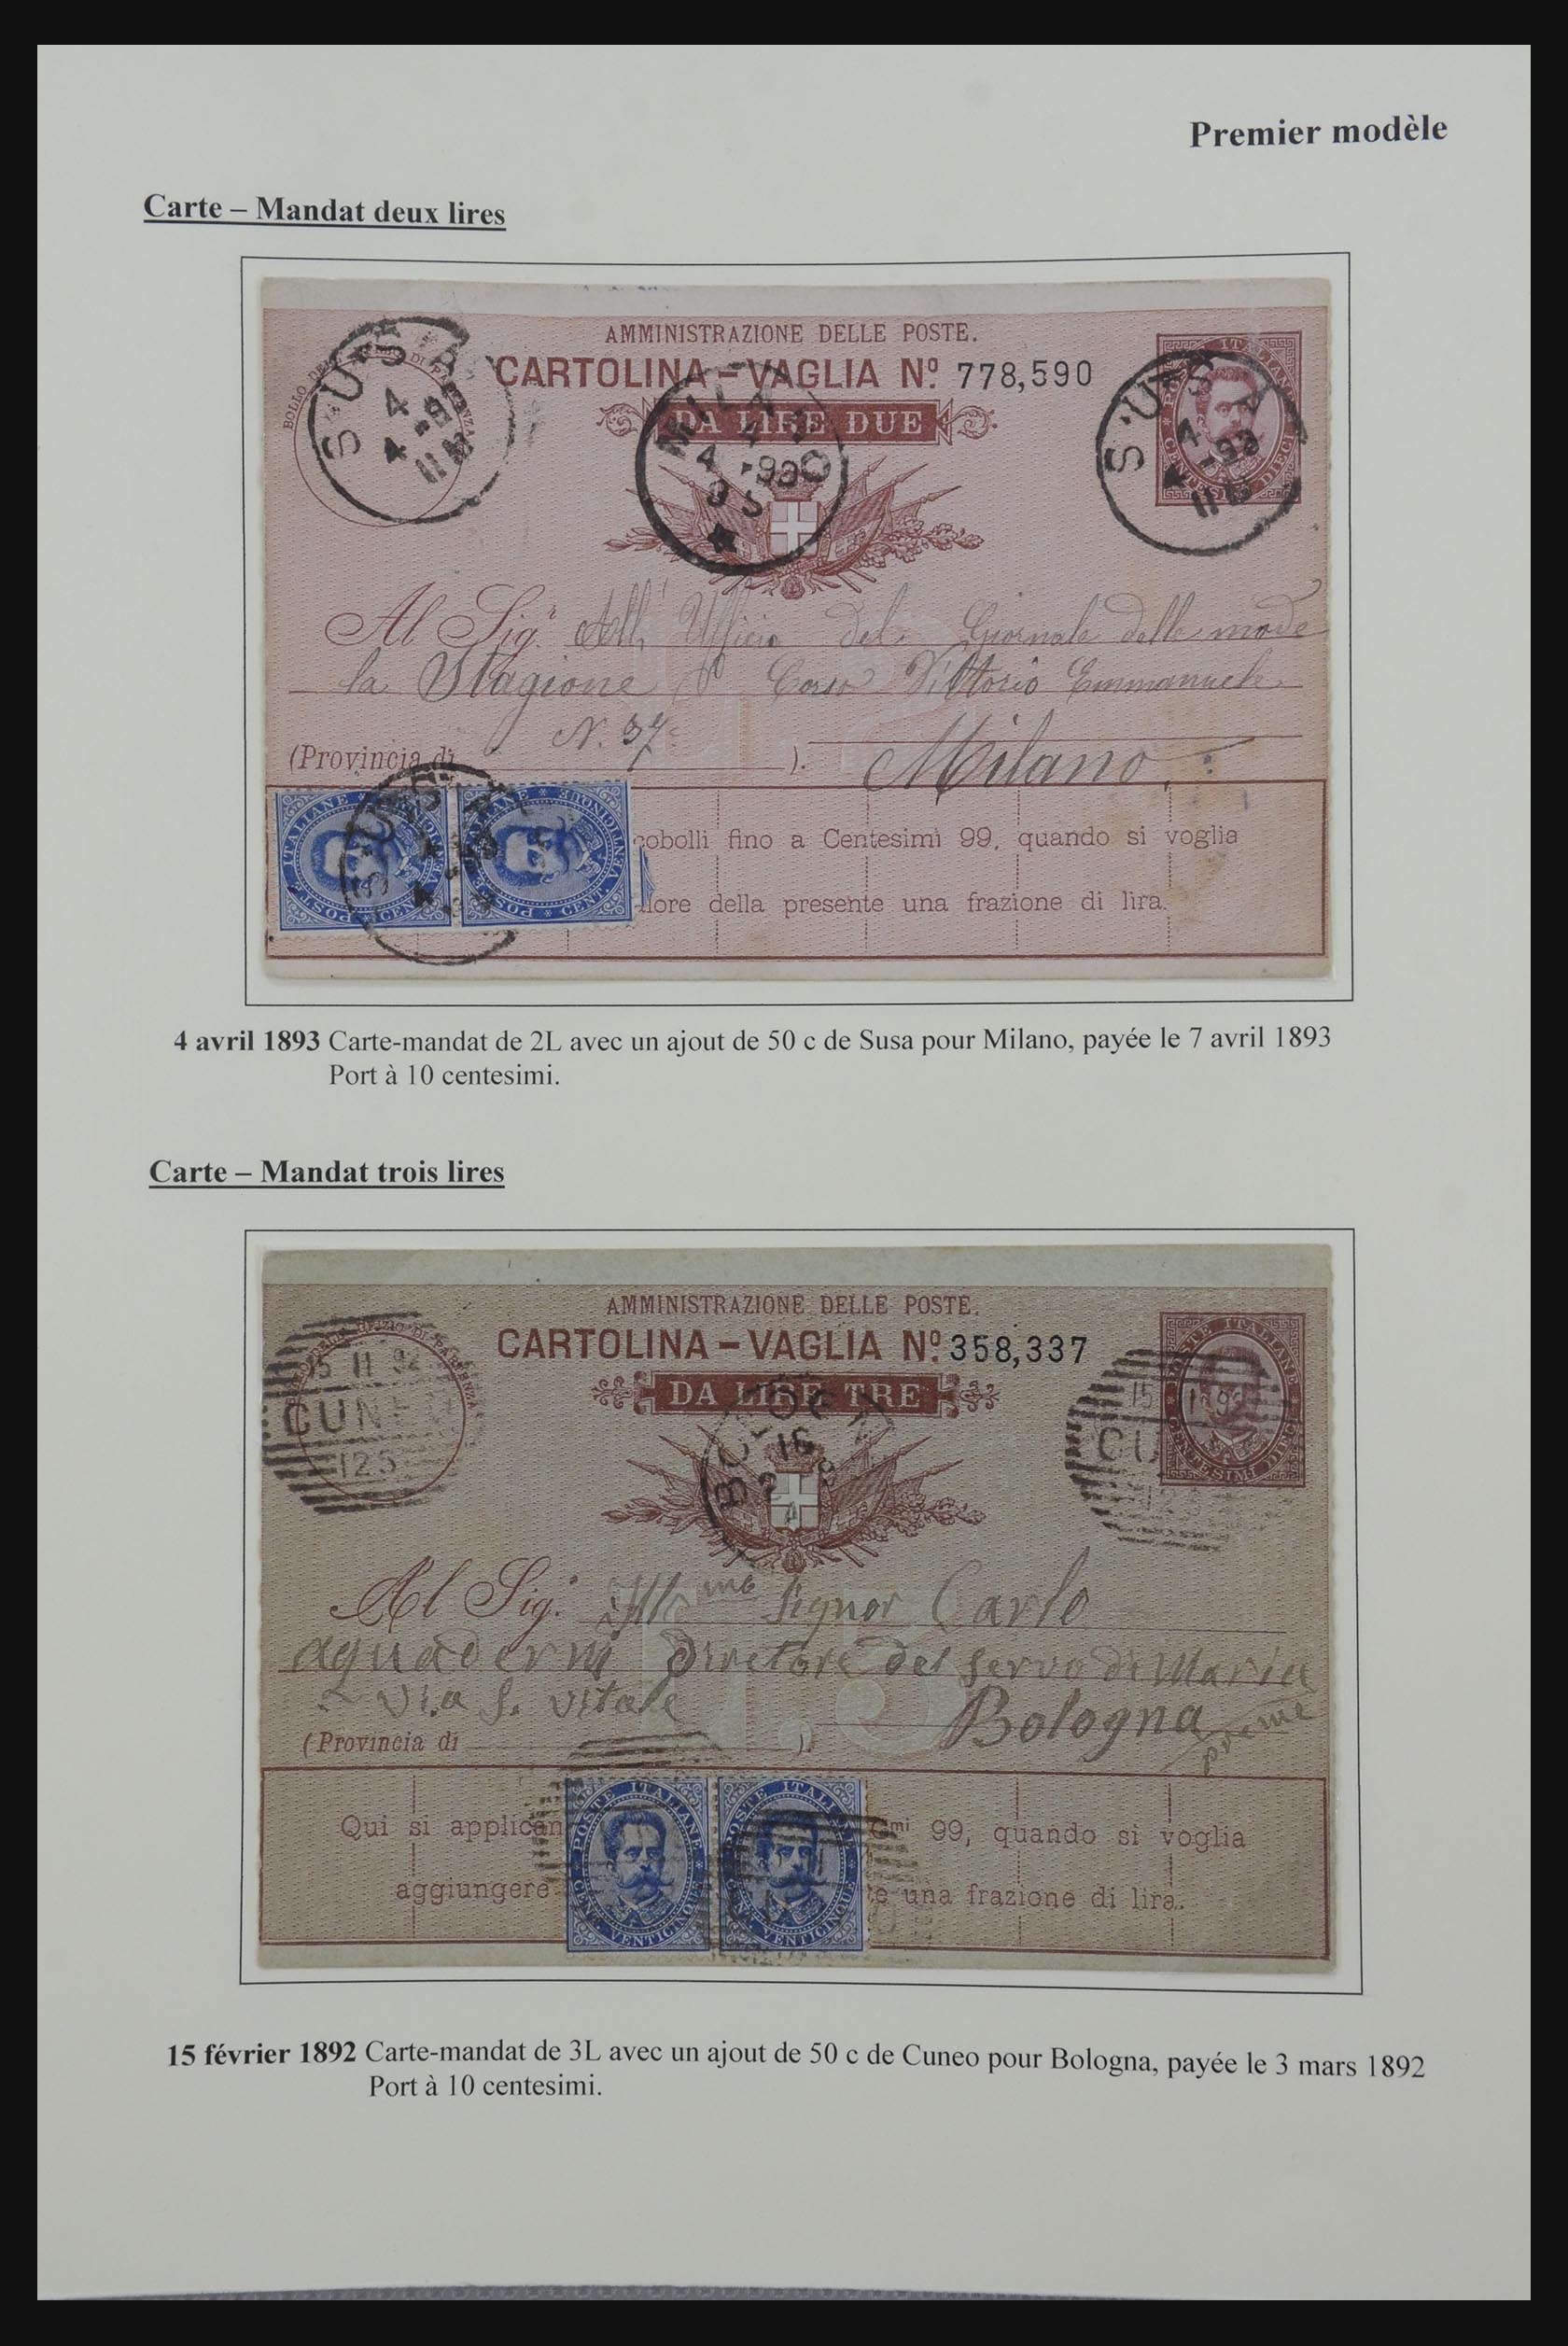 Premier modèle
Carte – Mandat deux lires
AMMINISTRAZIONE DELLE POSTE.
CARTOLINA – VAGLIA Nº. 778,590
DA LIRE DUE
SUSA
4
4 -93
11 M
MILANO
4 4 -93
9 S
SUSA
4
4 -93
11 M
Al Sig. All' Ufficio del Giornale delle mode
la Stagione Corso Vittorio Emmanuele
N. 37
(Provincia di ). Milano
POSTE ITALIANE CENT. VENTICINQUE
cobolli fino a Centesimi 99, quando si voglia
lore della presente una frazione di lira.
4 avril 1893 Carte-mandat de 2L avec un ajout de 50 c de Susa pour Milano, payée le 7 avril 1893
Port à 10 centesimi.
Carte – Mandat trois lires
AMMINISTRAZIONE DELLE POSTE.
CARTOLINA – VAGLIA Nº. 358,337
DA LIRE TRE
15 II 92
CUNEO
125
POSTE ITALIANE
CENTESIMI DIECI
Al Sig. Illmo Signor Carlo
aquaderni Diretore del servo di Maria
Via S. Vitale
Bologna
(Provincia di ).
Qui si applican Cmi 99, quando si voglia
aggiungere e una frazione di lira.
POSTE ITALIANE POSTE ITALIANE
CENT. VENTICINQUE CENT. VENTICINQUE
15 février 1892 Carte-mandat de 3L avec un ajout de 50 c de Cuneo pour Bologna, payée le 3 mars 1892
Port à 10 centesimi.